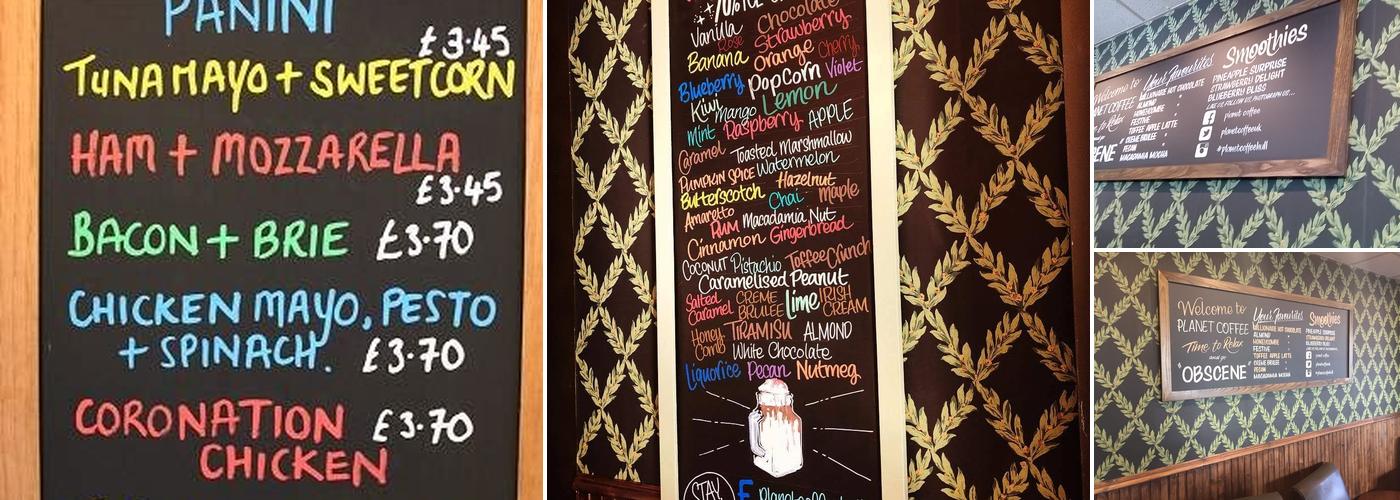 PANINI
£3.45
TUNA MAYO + SWEETCORN
HAM + MOZZARELLA
£3.45
BACON + BRIE £3.70
CHICKEN MAYO, PESTO
+ SPINACH. £3.70
CORONATION £3.70
CHICKEN
Vanilla Chocolate
Rose Strawberry
Banana Orange Cherry
Blueberry PopCorn Violet
Kiwi Mango Lemon
Mint Raspberry APPLE
Caramel Toasted Marshmallow
PUMPKIN SPICE Watermelon
Butterscotch Hazelnut
Chai maple
Amaretto
RUM Macadamia Nut
Cinnamon Gingerbread
COCONUT Pistachio Toffee Crunch
Caramelised Peanut
Salted Caramel CREME BRULEE lime IRISH CREAM
Honey Comb TIRAMISU ALMOND
White Chocolate
Liquorice Pecan Nutmeg
STAY
Welcome to Your Favourites Smoothies
PLANET COFFEE
MILLIONAIRE HOT CHOCOLATE
ALMOND
HONEYCOMBE
FESTIVE
TOFFEE APPLE LATTE
CREME BRULEE
PECAN
MACADAMIA MOCHA
PINEAPPLE SURPRISE
STRAWBERRY DELIGHT
BLUEBERRY BLISS
planet coffee
planetcoffeeuk
#planetcoffeehull
Welcome to
PLANET COFFEE
Time to Relax
and go
OBSCENE
Your Favourites
MILLIONAIRE HOT CHOCOLATE
ALMOND
HONEYCOMBE
FESTIVE
TOFFEE APPLE LATTE
CREME BRULEE
PECAN
MACADAMIA MOCHA
Smoothies
PINEAPPLE SURPRISE
STRAWBERRY DELIGHT
BLUEBERRY BLISS